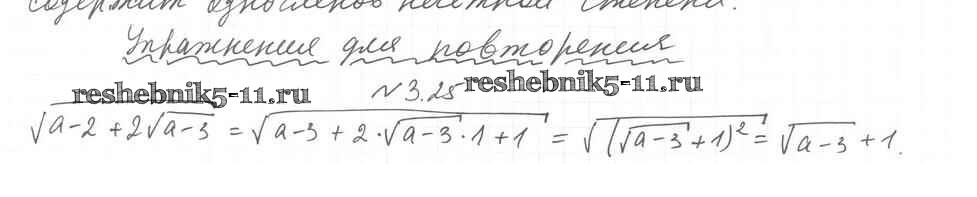 содержит одночленов нечётной степени.
Упражнения для повторения
reshebnik5-11.ru №3.25 reshebnik5-11.ru
√(a-2+2√(a-3)) = √(a-3+2·√(a-3)·1+1) = √((√(a-3)+1)²) = √(a-3)+1.